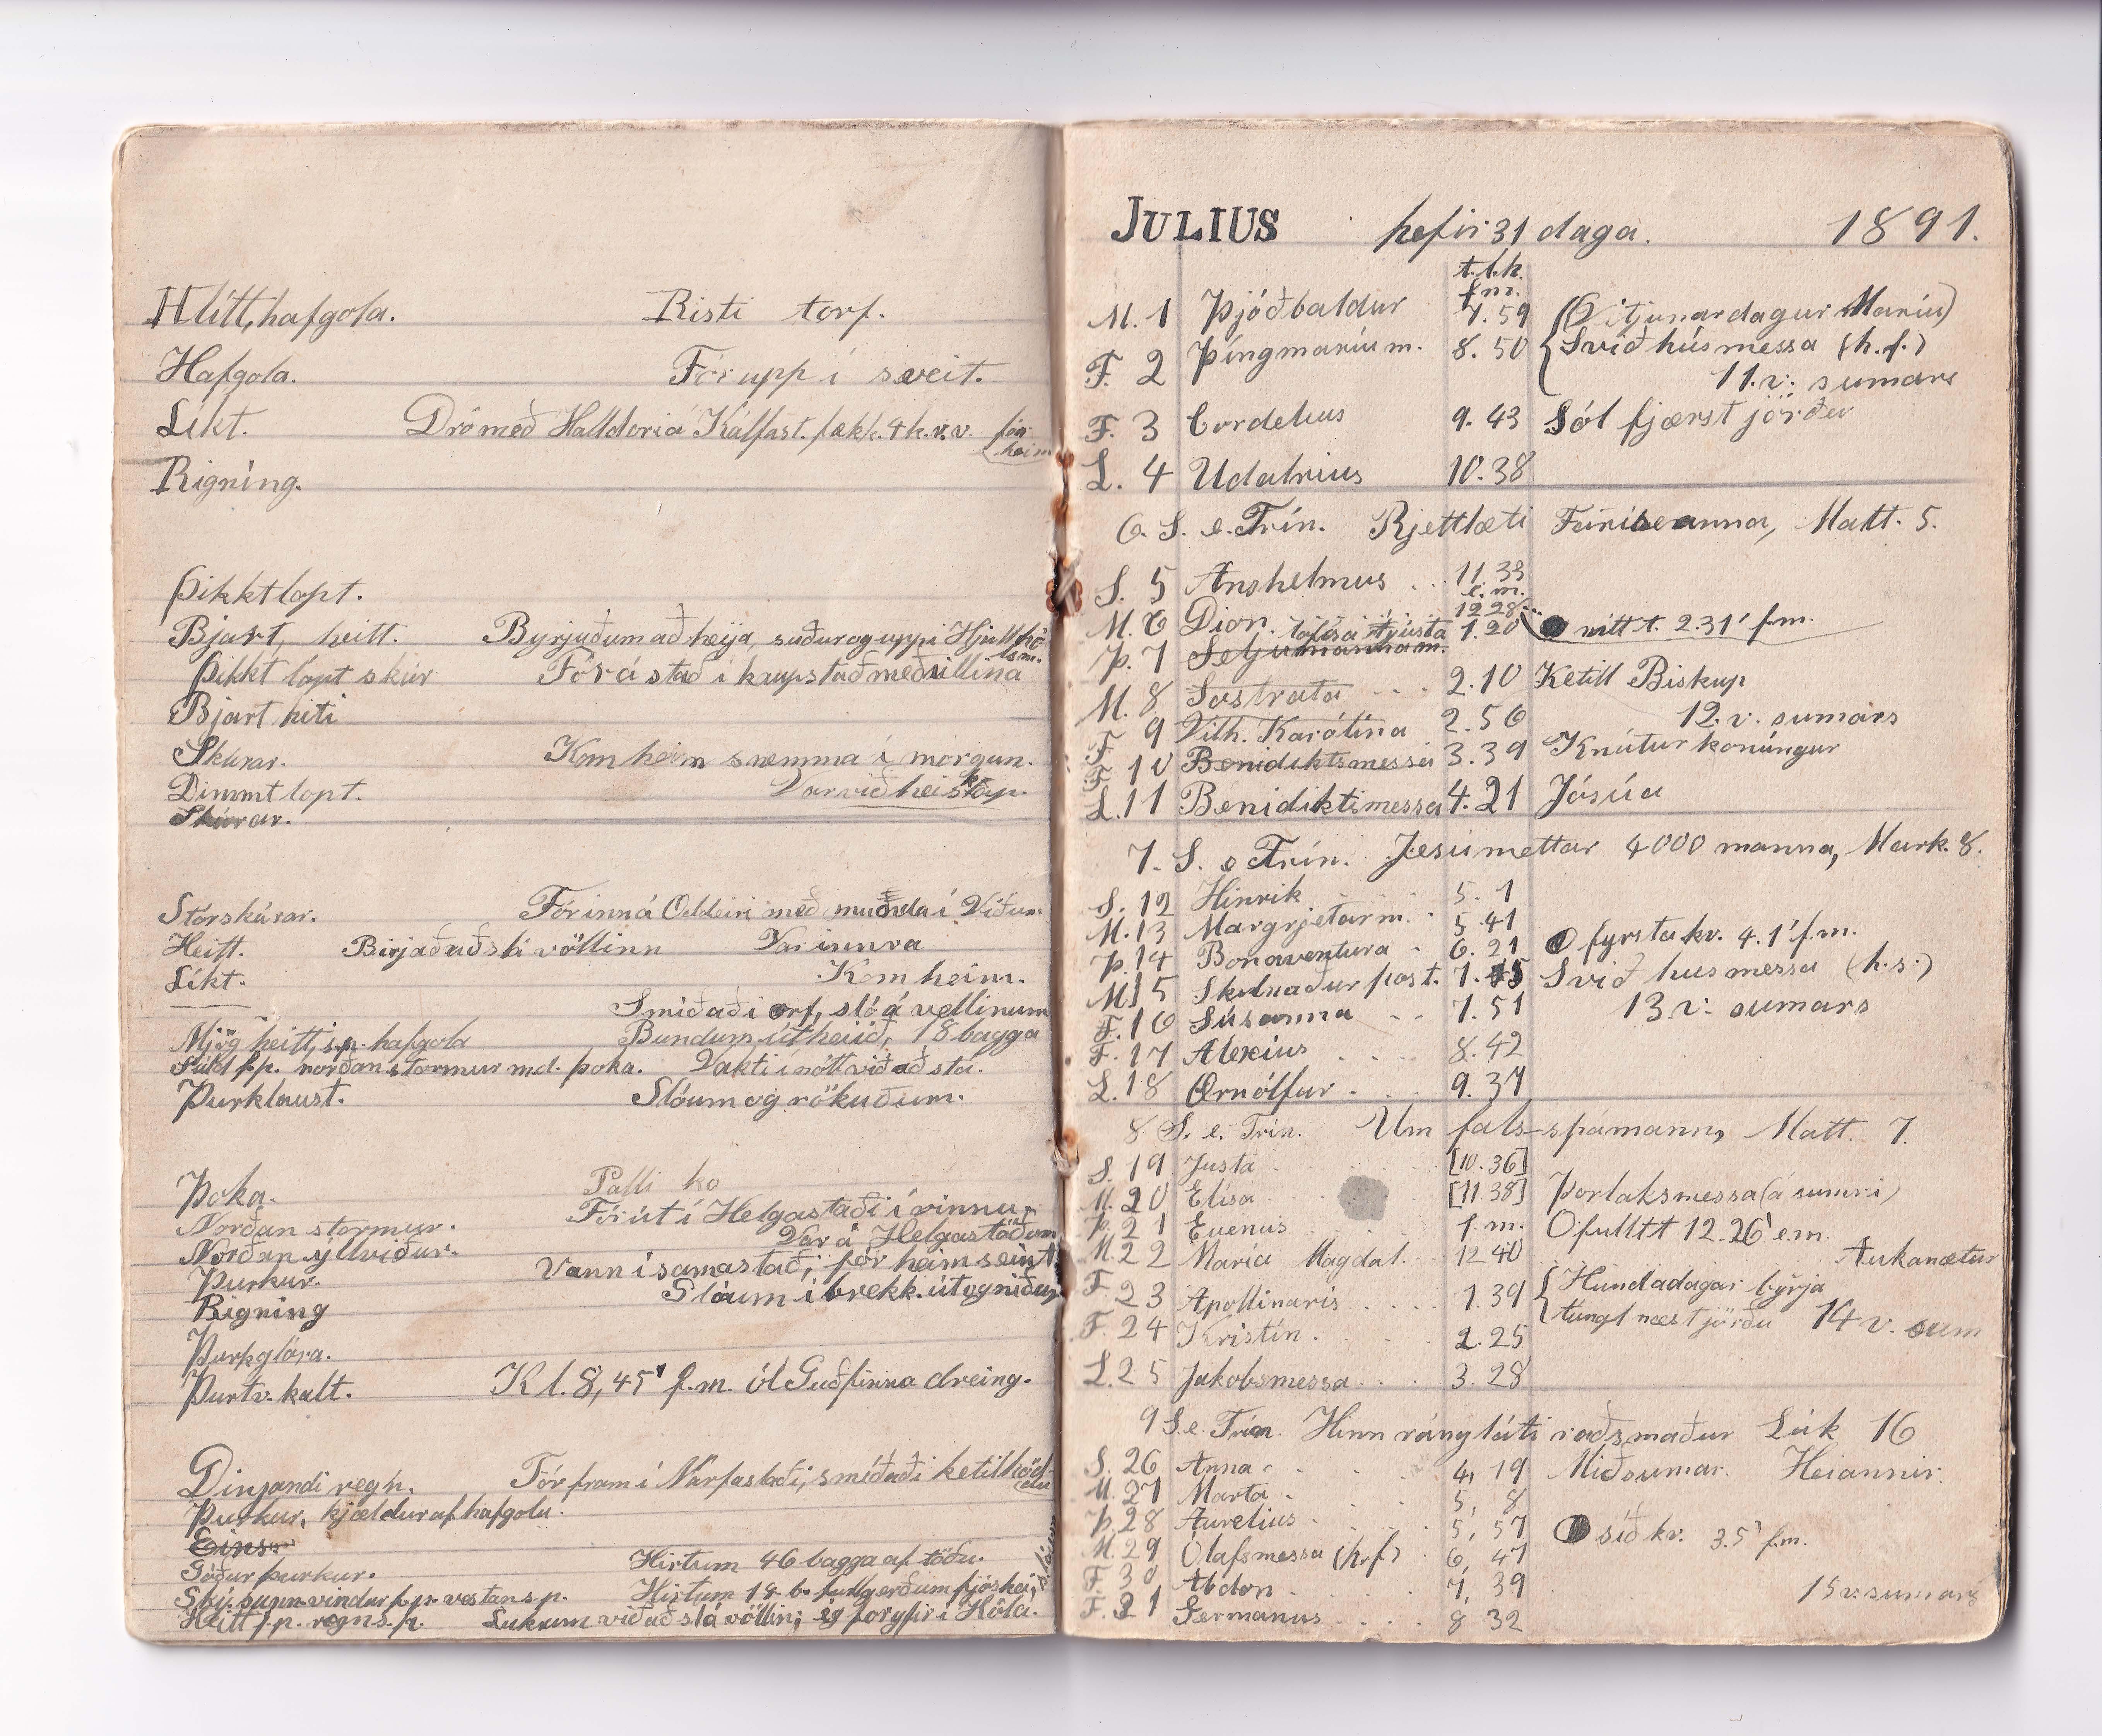 Hlítt, hafgola. Risti torf.
Hafgola. Fór upp í sveit.
Líkt. Dró með Halldóri á Kálfast. fækk. 4 h.v.v. fór heim
Rigníng.
Þikkt lopt.
Bjart, heitt. Byrjuðum að heija, suður og upp í Hjallhólsm.
Þikkt lopt skúr Fór á stað í kaupstað með ullina
Bjart hiti
Skúrar. Kom heim snemma í morgun.
Dimmt lopt. Var við heiskap.
Skúrar.
Stórskúrar. Fór inn á Oddeiri með munda í Víðum
Heitt. Birjað að slá völlinn Var innra
Líkt. Kom heim.
Smíðaði orf, sló á vellinum
Mjög heitt, s.p. hafgola Bundum útheiið, 18 bagga
f.p. norðan stormur m.d. þoka. Vakti í nótt við að slá.
Þurklaust. Slóum og rökuðum.
Þoka. Palli ko
Norðan stormur. Fór út í Helgastaði í vinnu.
Norðan ýllviður. Var á Helgastöðum
Þurkur. Vann í sama stað, fór heim seint.
Rigning Slóum í brekk. út og niður,
Þurkglóra.
Þurtv. kalt. Kl. 8,45' f.m. ól Guðfinna dreing.
Dinjandi regn. Fór fram í Narfastaði, smíðaði ketilhöddu
Þurkur, kjældur af hafgolu.
Eins
Góður þurkur. Hirtum 46 bagga af töðu.
Ský. sunnvindur f.p. vestan s.p. Hirtum 18 b. fullgerðum fjóshei,
Heitt f.p. regn s.p. Lukum við að slá völlin; ég for yfir í Hóla.
JULIUS hefir 31 daga. 1891.
t.í.h.
f.m.
M. 1 Þjóðbaldur 7.59 (Vitjunardagur Maríu)
F. 2 Þíngmaríum. 8.50 Sviðhúsmessa (h.f.)
11. v. sumars
F. 3 Cordelius 9.43 Sól fjærst jörðu
L. 4 Udalrius 10.38
6. S. e. Trín. Rjettlæti Faríseanna, Matt. 5.
S. 5 Anshelmus . . 11.33
e.m.
M. 6 Dion. 12.28 nítt t. 2.31' f.m.
Þ. 7 1.20
M. 8 Sostrata - - . 2.10 Ketill Biskup
F. 9 Vilh. Karólína 2.56 12. v. sumars
F 10 Benidiktsmessa 3.39 Knútur konúngur
L. 11 Benidiktsmessa 4.21 Jósúa
7. S. e Trín. Jesú mettar 4000 manna, Mark. 8.
S. 12 Hinrik 5. 1
M. 13 Margrjetarm. . 5.41
Þ. 14 Bonaventura - 6.21 fyrsta kv. 4.1' f.m.
M 15 Skilnaður post. 7.15 Svið husmessa (h.s.)
F. 16 Súsanna - . 7.51 13 v. sumars
F. 17 Alexius . . . 8.42
L. 18 Ørnólfur - . . 9.37
8 S. e. Trín. Um fals-spámann, Matt. 7.
S. 19 Justa . [10.36]
M. 20 Elísa . [11.38] Þorlaksmessa (á sumri)
Þ. 21 Euenus f.m. O fullt t 12.26' e.m.
M. 22 María Magdal. 12 40 Aukanætur
F 23 Apollinaris . . . . 1.39 Hundadagar býrja
F. 24 Kristín . . . 2.25 tungl næst jörðu 14 v. sum
L. 25 Jakobsmessa . . . 3.28
9 S.e. Trín. Hinn rángláti ráðsmaður Lúk 16
S. 26 Anna - 4, 19 Miðsumar. Heiannir.
M. 27 Marta - 5, 8
Þ. 28 Aurelius - 5, 57 síð kv. 3.5' f.m.
M. 29 Ólafsmessa (h.f.) 6, 47
F. 30 Abdon 7, 39 15 v. sumars
F. 31 Germanus . . . . 8 32